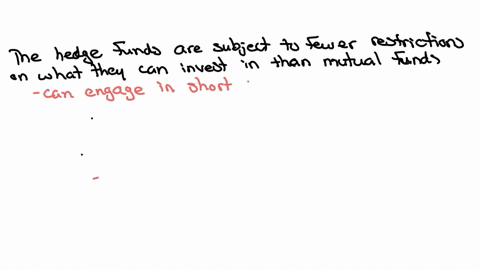 The hedge funds are subject to fewer restrictions
on what they can invest in than mutual funds
-can engage in short
-